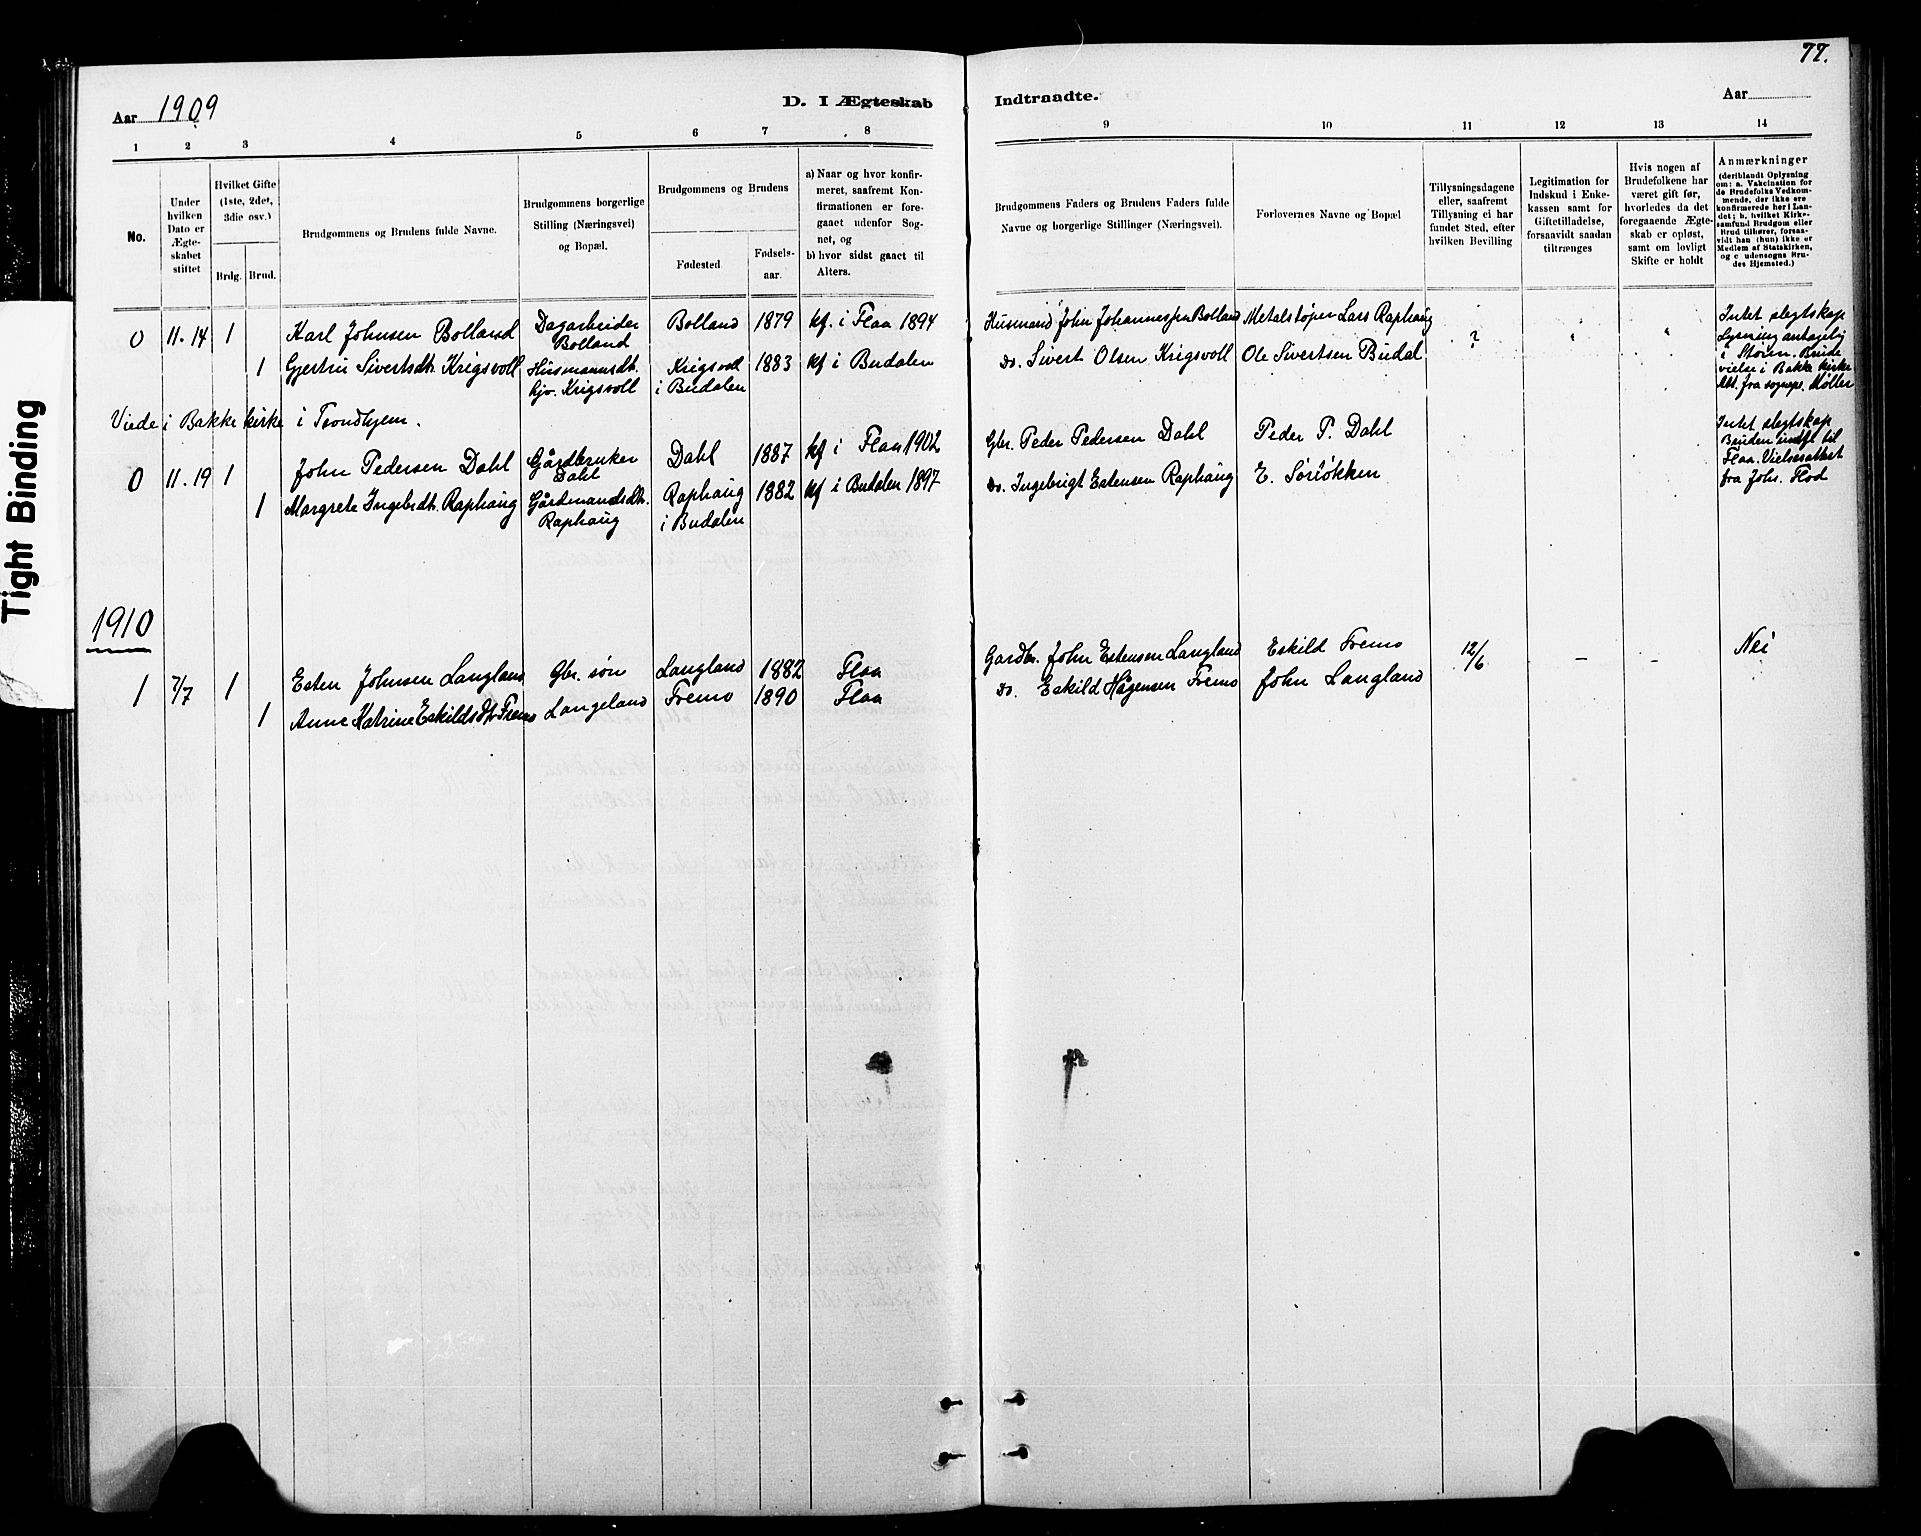 77.
Tight Binding
Aar 1909
D. I Ægteskab
Indtraadte.
Aar
1 2 3 4 5 6 7 8
9 10 11 12 13 14
No.
Under hvilken Dato er Ægteskabet stiftet
Hvilket Gifte (1ste, 2det, 3die osv.)
Brdg. Brud.
Brudgommens og Brudens fulde Navne.
Brudgommens borgerlige Stilling (Næringsvei) og Bopæl.
Brudgommens og Brudens
Fødested.
Fødsels-aar.
a) Naar og hvor konfirmeret, saafremt Konfirmationen er foregaaet udenfor Sognet, og
b) hvor sidst gaaet til Alters.
Brudgommens Faders og Brudens Faders fulde Navne og borgerlige Stillinger (Næringsvei).
Forlovernes Navne og Bopæl
Tillysningsdagene eller, saafremt Tillysning ei har fundet Sted, efter hvilken Bevilling
Legitimation for Indskud i Enkekassen samt for Giftetilladelse, forsaavidt saadan tiltrænges
Hvis nogen af Brudefolkene har været gift før, hvorledes da det foregaaende Ægteskab er opløst, samt om lovligt Skifte er holdt
Anmærkninger (deriblandt Oplysning om: a. Vakcination for de Brudefolks Vedkommende, der ikke ere konfirmerede her i Landet; b. hvilket Kirkesamfund Brudgom eller Brud tilhører, forsaavidt han (hun) ikke er Medlem af Statskirken, og c udensogns Brudes Hjemsted.)
0 11.14 1 Karl Johnsen Bolland Dagarbeider Bolland Bolland 1879 kf. i Flaa 1894 Husmand John Johannessen Bolland Metalstøper Lars Raphaug ?
1 Gjertru Sivertsdt. Krigsvoll Husmannsdt. hjv. Krigsvoll Krigsvoll i Budalen 1883 kf i Budalen Do. Sivert Olsen Krigsvoll Ole Sivertsen Budal
Intet slegtskap
Lysning antagelig
i Støren. Brude
vielse i Bakke kirke
Att. fra sognepr. Møller
Viede i Bakke kirke i Trondhjem.
0 11.19 1 John Pedersen Dahl Gårdbruker Dahl Dahl 1887 kf i Flaa 1902 Gbr. Peder Pedersen Dahl Peder P. Dahl
1 Margrete Ingebrdt. Raphaug Gårdmandsdt. Raphaug Raphaug i Budalen 1882 kf i Budalen 1897 Do. Ingebrigt Estensen Raphaug E. Sørløkken
Intet slegtskap
Bruden indfl til
Flaa. Vielsesattest
fra Joh. Flod
1910
1 7/7 1 Esten Johnsen Langland Gbr. søn Langland 1882 Flaa Gardbr. John Estensen Langland Eskild Fremo 12/6 - - Nei
1 Anne Katrine Eskildsdtr Fremo Langeland Fremo 1890 Flaa Do. Eskild Hågensen Fremo John Langland